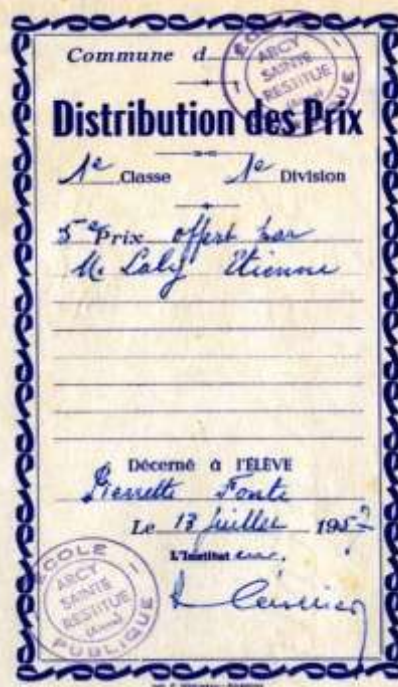 Commune d
ÉCOLE PUBLIQUE
ARCY
SAINTE
RESTITUE
(Aisne)
Distribution des Prix
1e Classe 1e Division
5e Prix offert par
M. Laly Etienne
Décerné à l'ÉLÈVE
Pierrette Fonte
Le 13 juillet 195
L'Institut
ÉCOLE PUBLIQUE
ARCY
SAINTE
RESTITUE
(Aisne)